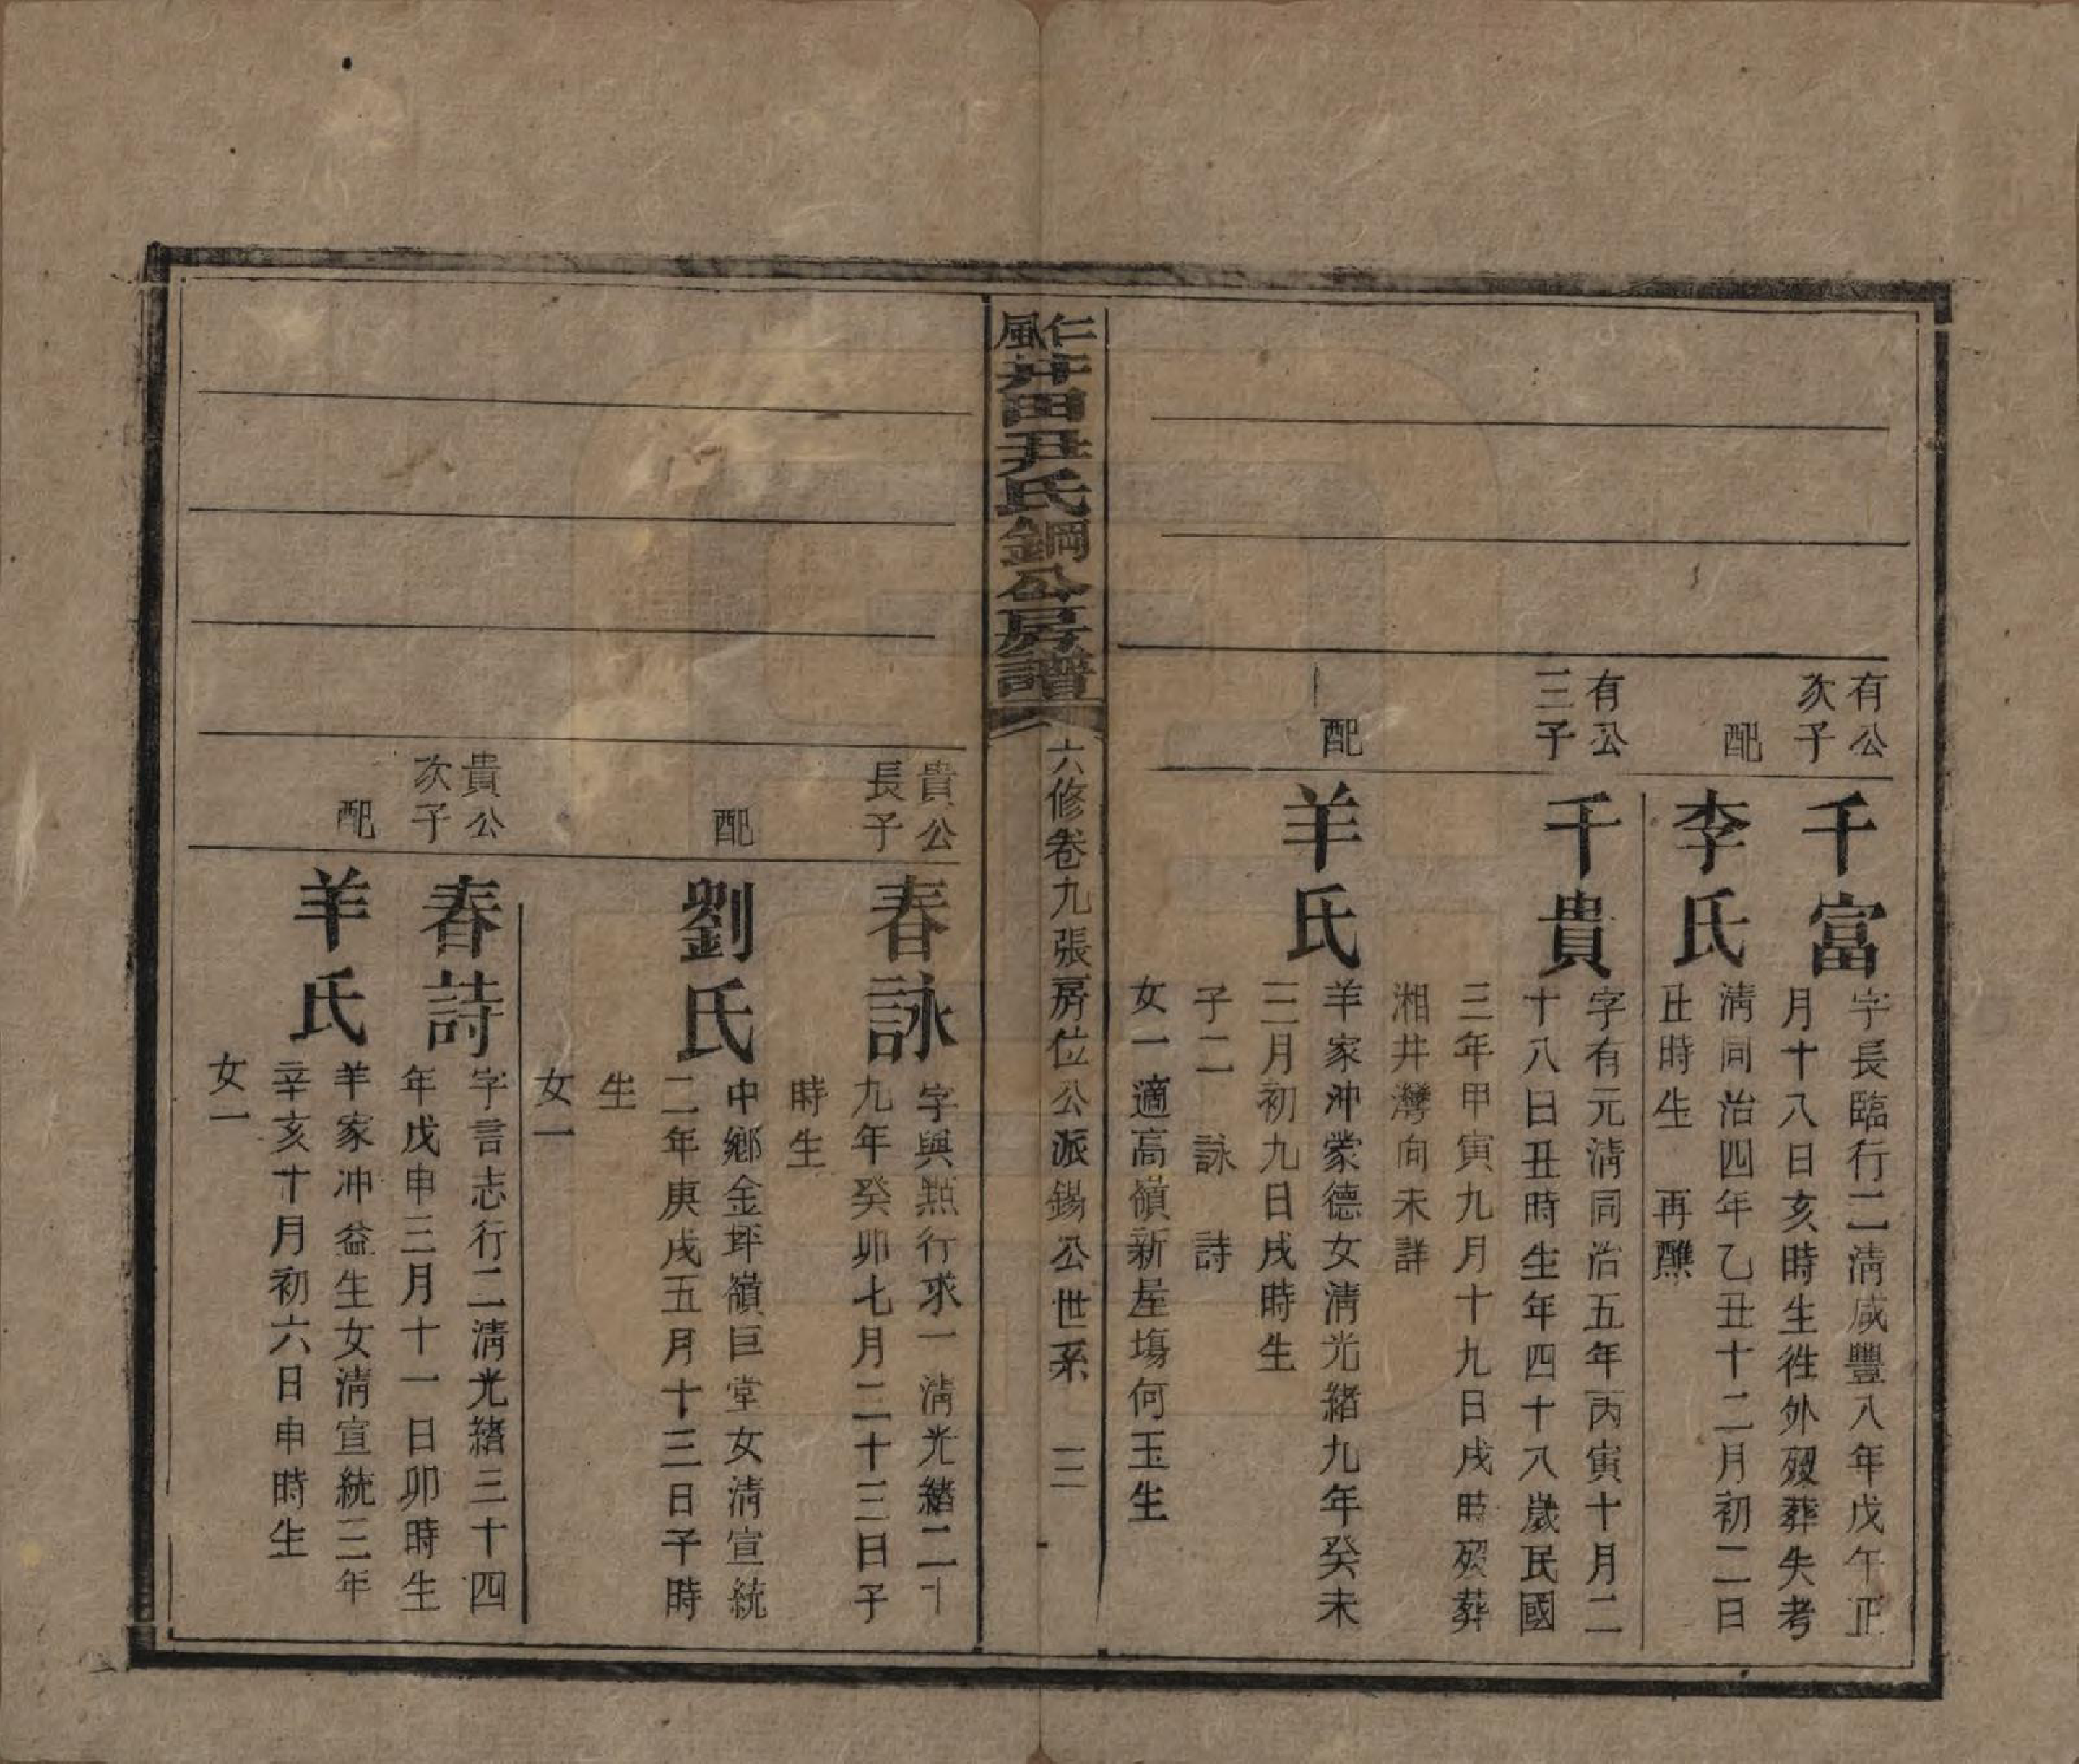 有公
次子
千富
字長臨行二清咸豐八年戊午正
月十八日亥時生徃外歿葬失考
配
李氏
清同治四年乙丑十二月初二日
丑時生　再醮
有公
三子
千貴
字有元清同治五年丙寅十月二
十八日丑時生年四十八歲民國
三年甲寅九月十九日戌時歿葬
湘井灣向未詳
配
羊氏
羊家冲蒙德女清光緒九年癸未
三月初九日戌時生
子二　詠　詩
女一適高嶺新屋塲何玉生
仁風井田尹氏鋼公房譜
六修卷九張房位公派錫公世系　三
貴公
長子
春詠
字與點行求一清光緒二十
九年癸卯七月二十三日子
時生
配
劉氏
中鄉金坪嶺巨堂女清宣統
二年庚戌五月十三日子時
生
女一
貴公
次子
春詩
字言志行二清光緒三十四
年戊申三月十一日卯時生
配
羊氏
羊家冲益生女清宣統三年
辛亥十月初六日申時生
女一